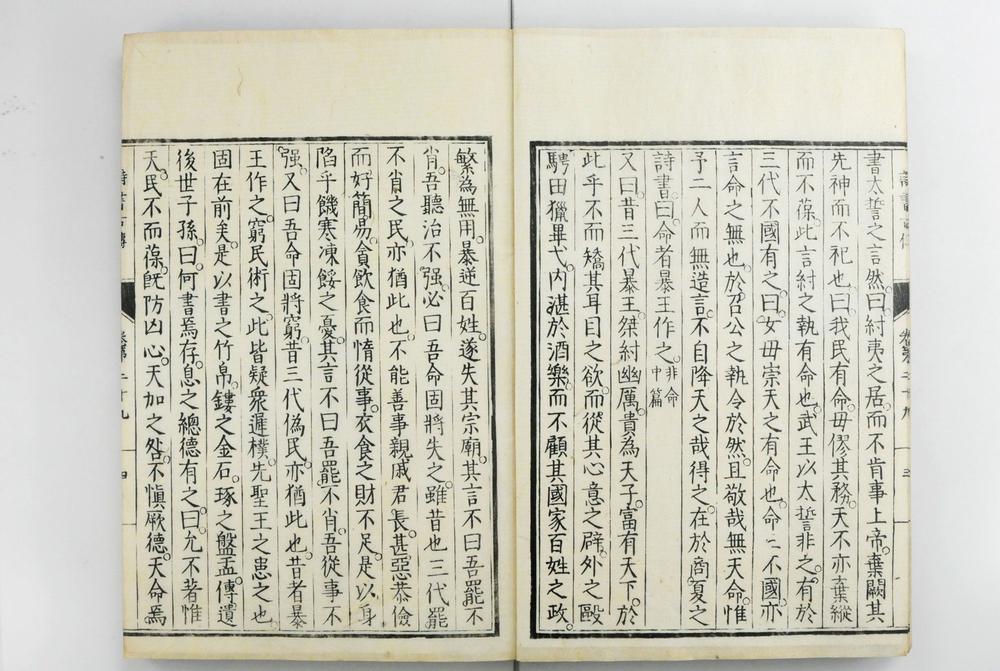 書太誓之言然。曰紂夷之居。而不肯事上帝。棄闕其
先神而不祀也。曰我民有命。毋僇其務。天不亦棄縱
而不葆。此言紂之執有命也。武王以太誓非之。有於
三代不國有之。曰。女毋崇天之有命也。命三不國亦
言命之無也。於召公之執令於然。且敬哉無天命。惟
予二人而無造言。不自降天之哉得之。在於商夏之
詩書。曰。命者暴王作之。非命中篇
又曰。昔三代暴王桀紂幽厲。貴為天子。富有天下。於
此乎不而矯其耳目之欲。而從其心意之辟。外之敺
騁田獵畢弋。內湛於酒樂。而不顧其國家百姓之政。
繁為無用。暴逆百姓。遂失其宗廟。其言不曰吾罷不
肖。吾聽治不強。必曰吾命固將失之。雖昔也三代罷
不肖之民。亦猶此也。不能善事親戚君長。甚惡恭儉
而好簡易。貪飲食而惰從事。衣食之財不足。是以身
陷乎饑寒凍餒之憂。其言不曰吾罷不肖。吾從事不
強。又曰吾命固將窮。昔三代偽民。亦猶此也。昔者暴
王作之。窮民術之。此皆疑眾遲樸。先聖王之患之也。
固在前矣。是以書之竹帛。鏤之金石。琢之盤盂。傳遺
後世子孫。曰。何書焉存。息之總德有之。曰。允不著惟
天。民不而葆。既防凶心。天加之咎。不慎厥德。天命焉
卷第二十九
三
卷第二十九
四